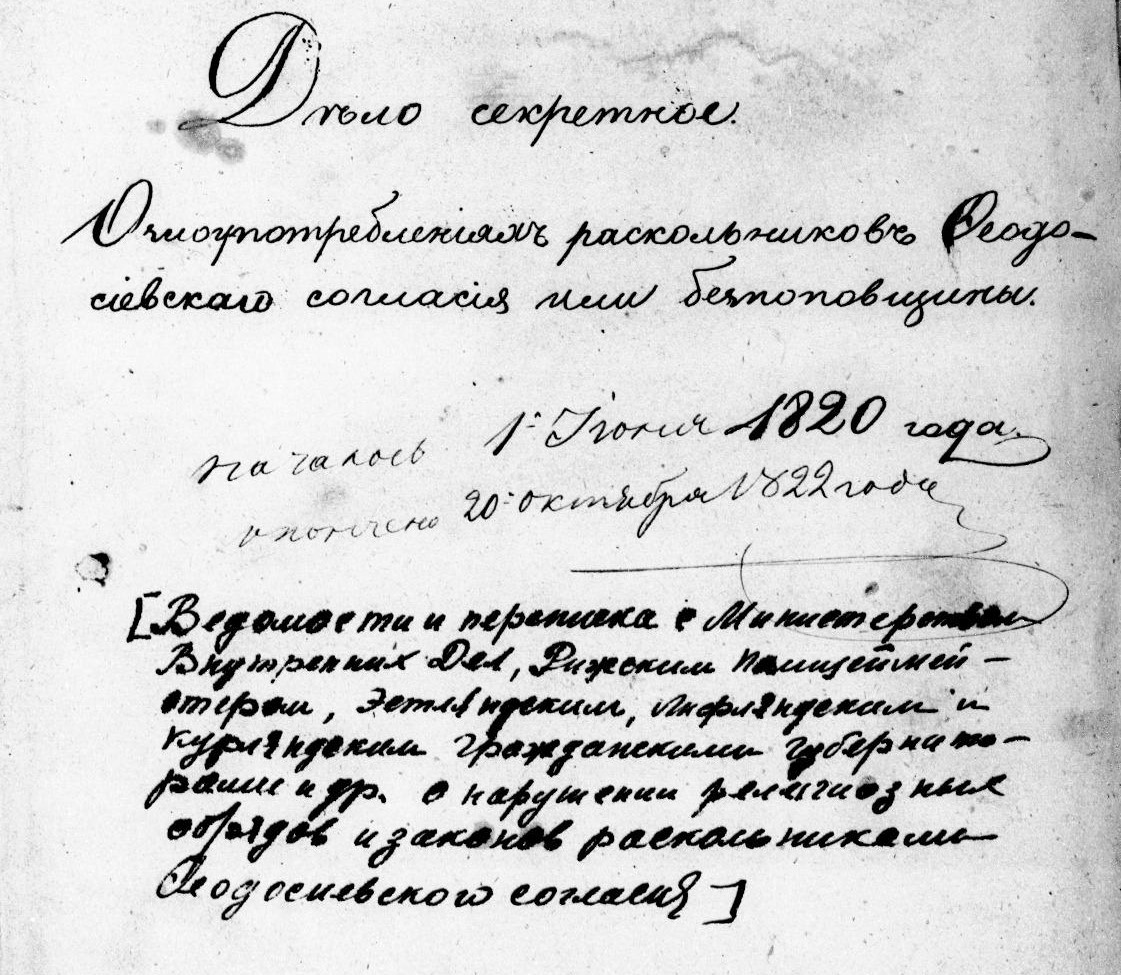 Дѣло секретное.
О злоупотребленіяхъ раскольниковъ Ѳеодо-
сіевскаго согласія или безпоповщины.
Началось 1. Іюня 1820 года.
окончено 20. октября 1822 года
[Ведомости и переписка с Министерством
Внутренних Дел, Рижским полицеймей-
стером, Эстляндским, Лифляндским и
Курляндским гражданскими губернато-
рами и др. о нарушении религиозных
обрядов и законов раскольниками
Феодосиевского согласия]